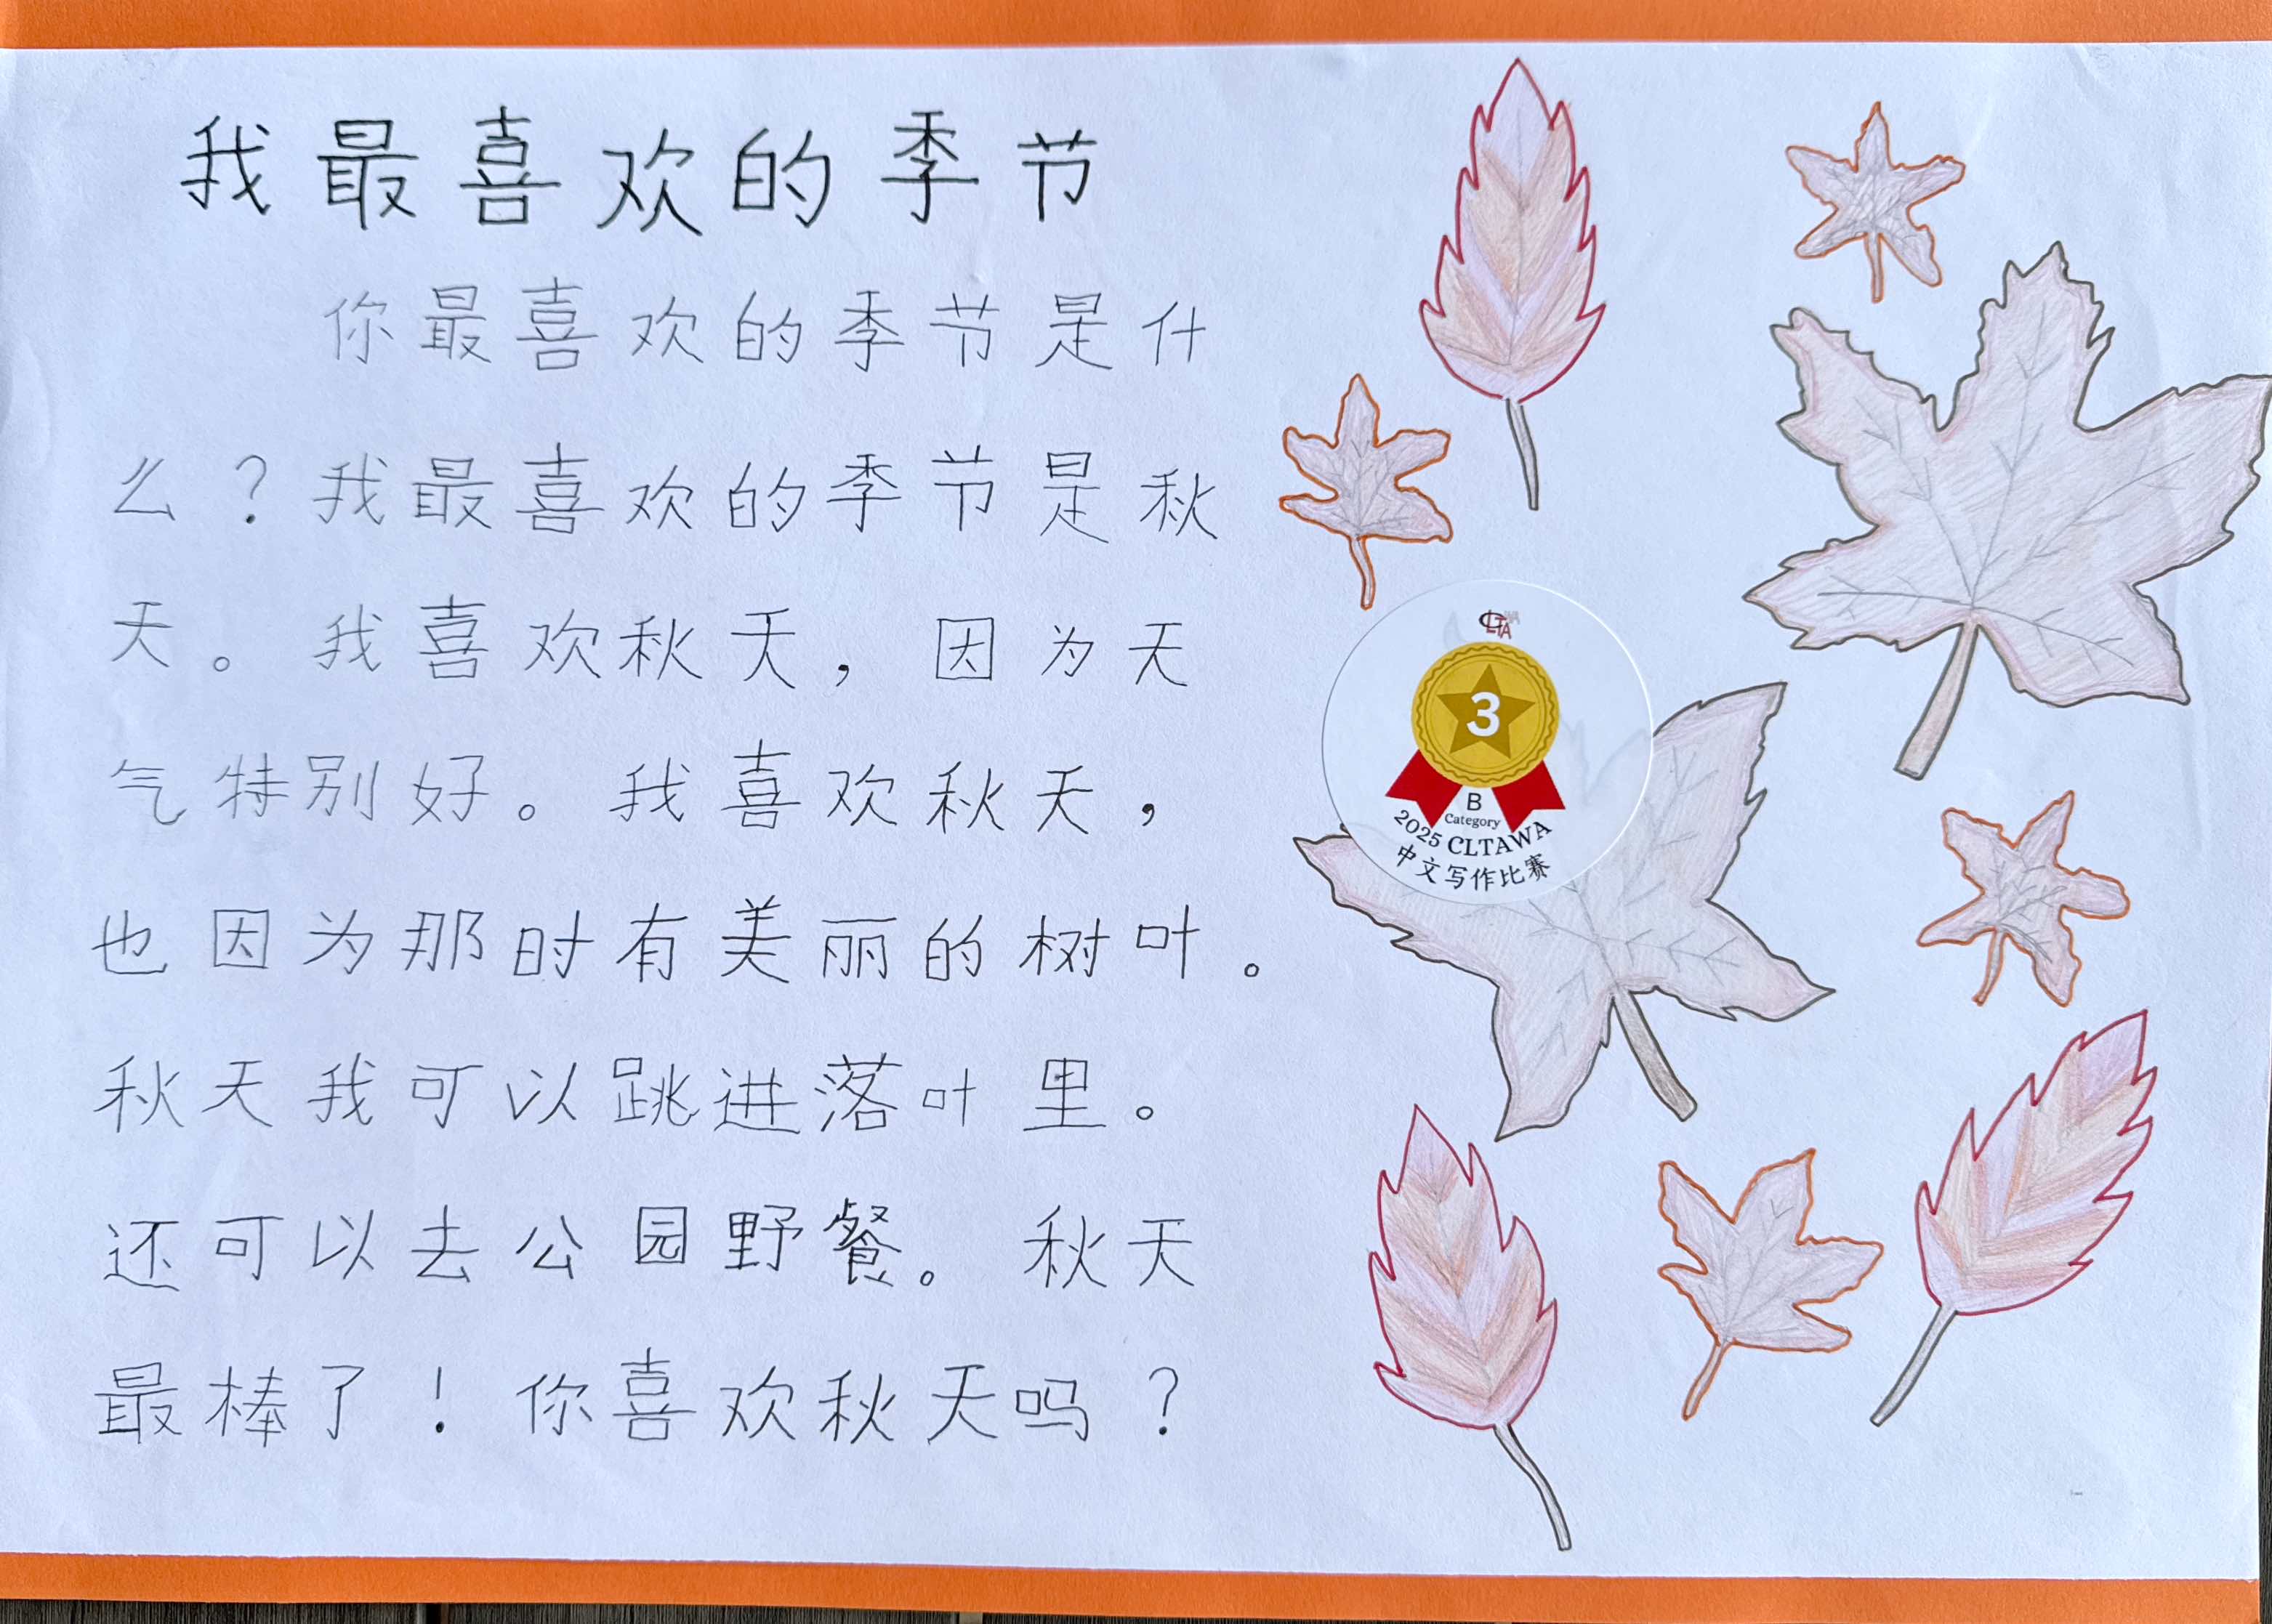 我最喜欢的季节
你最喜欢的季节是什
么？我最喜欢的季节是秋
天。我喜欢秋天，因为天
气特别好。我喜欢秋天，
也因为那时有美丽的树叶。
秋天我可以跳进落叶里。
还可以去公园野餐。秋天
最棒了！你喜欢秋天吗？
CLTA
3
B
Category
2025 CLTAWA
中文写作比赛